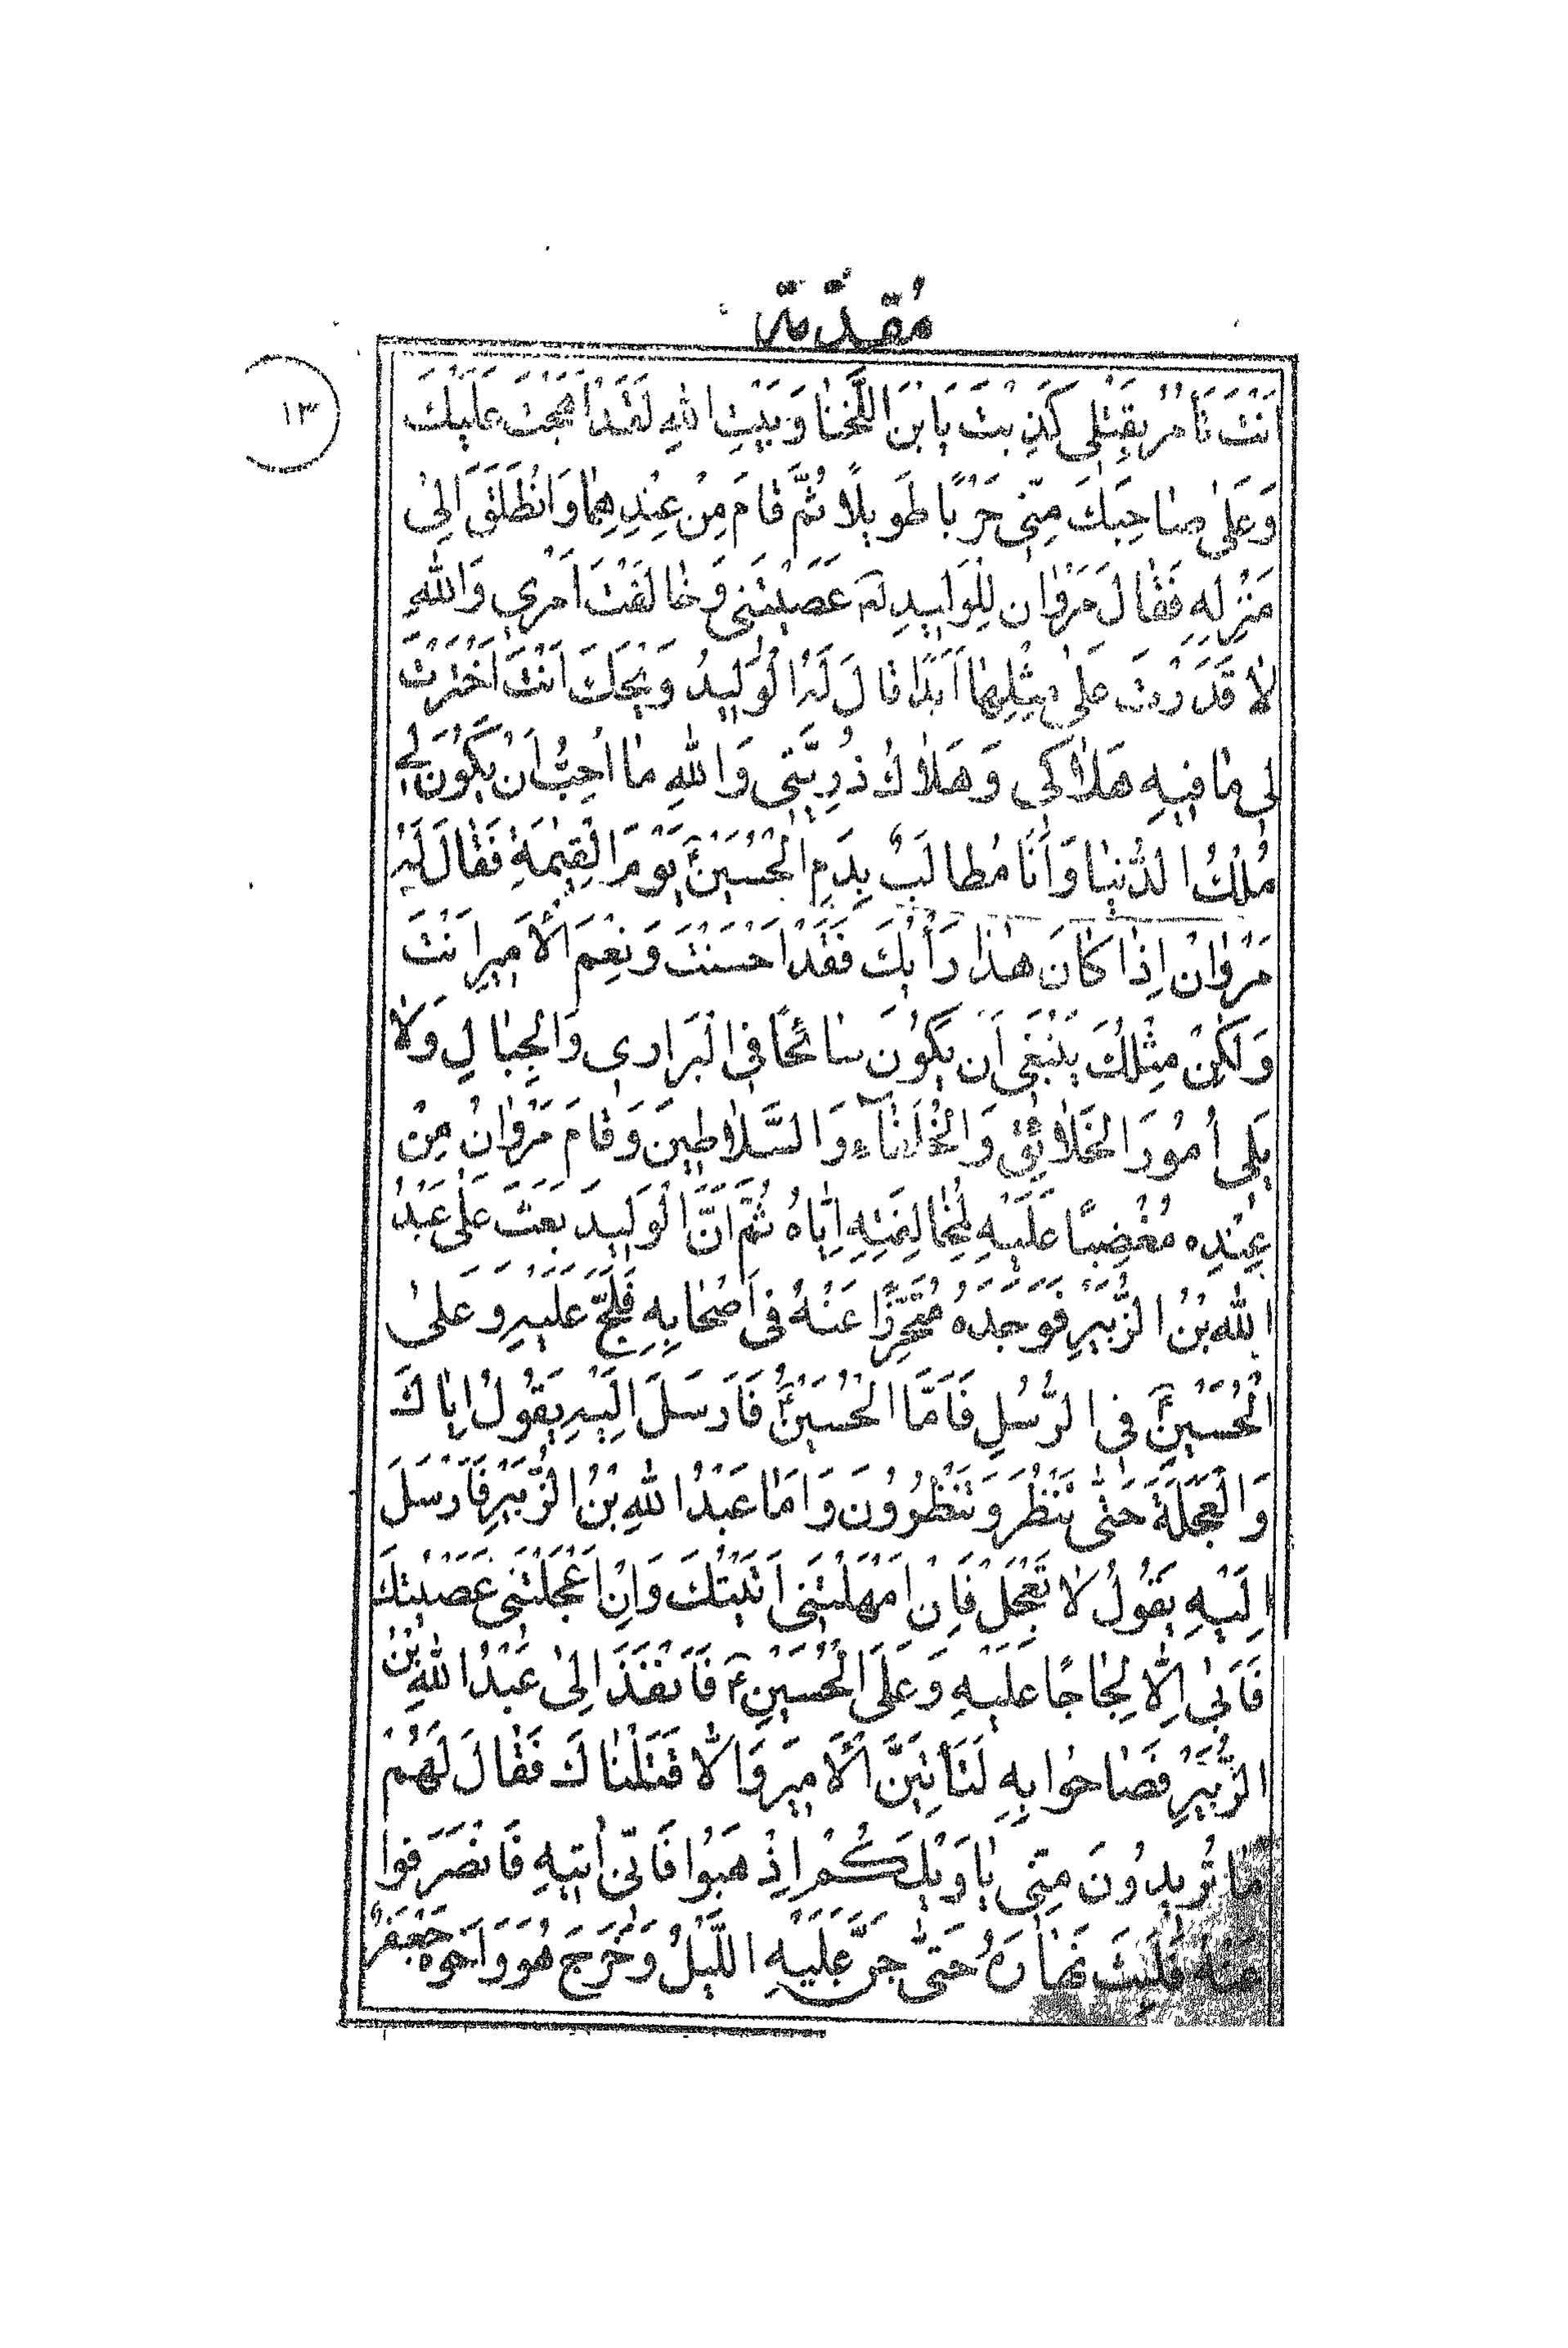 مُقدّمة
١٣
اَنْتَ تَأمُرُ بِقَتْلِي كَذِبْتَ يَا بْنَ اللَّخْنَا وَبَيْتِ اللهِ لَقَدْ اَهَجْتَ عَلَيْكَ
وَعَلىٰ صٰاحِبِكَ مِنّي حَرْبًا طَوِيلًا ثُمَّ قٰامَ مِنْ عِنْدِهِمٰا وَانْطَلَقَ اِلىٰ
مَنْزِلِهِ فَقٰالَ مَرْوٰان لِلْوَلِيدِ لِمَ عَصَيْتَنِي وَخٰالَفْتَ اَمْرِي وَاللهِ
لاٰ قَدَرْتَ عَلىٰ مِثْلِهٰا اَبَدًا قٰالَ لَهُ الْوَلِيدُ وَيْحَكَ اَنْتَ اَخْتَرْتَ
لِي مٰا فِيهِ هَلاٰكِي وَهَلاٰكُ ذُرِيَّتِي وَاللهِ مٰا اُحِبُّ اَنْ يَكُوْنَ لِي
مُلْكُ الدُّنْيٰا وَاَنَا مُطالَبٌ بِدَمِ الْحُسَيْنِ ع يَوْمَ الْقِيٰمَةِ فَقٰالَ لَهُ
مَرْوٰانْ اِذٰا كٰانَ هٰذٰا رَأْيُكَ فَقَدْ اَحْسَنْتَ وَنِعْمَ الْاَمِيرِ اَنْتَ
وَلٰكِنْ مِثْلُكَ يَنْبَغِي اَن يَكُوْنَ سٰائحًا فِي الْبَرَارِي وَالْجِبٰالِ وَلاٰ
يَلِي اُمُوْرَ الْخَلاٰئِقِ وَالْخُلَفٰآءِ وَالسَّلاٰطِينَ وَقٰامَ مَرْوٰانُ مِنْ
عِنْدِه مُغْضِبًا عَلَيْهِ لِمُخٰالِفَتِهِ اِيّٰاهُ ثُمَّ اَنَّ الْوَلِيدَ بَعَثَ عَلىٰ عَبْدُ
اللهِ بْنُ الزُّبَيْرِ فَوَجَدَهُ مُتَحَرِّزًا عَنْهُ فِي اَصْحٰابِهِ فَلَحَّ عَلَيْهِ وَعَلىٰ
الْحُسَيْنِ ع فِي الرُّسُلِ فَاَمَّا الْحُسَيْنُ ع فَاَرْسَلَ اِلَيْهِ يَقُولُ اِيّٰاكَ
وَالْعَجَلَةَ حَتّٰى نَنْظُرَ وَتَنْظُرُوْنَ وَاَمّٰا عَبْدُ اللهِ بْنُ الزُّبَيْرِ فَاَرْسَلَ
اِلَيْهِ يَقُولُ لاٰ تَعْجَلْ فَاِنْ اَمْهَلْتَنِي اَتَيْتُكَ وَاِنْ اَعْجَلْتَنِي عَصَيْتُكَ
فَاَبىٰ اِلّاٰ لِجٰاجًا عَلَيْهِ وَعَلَى الْحُسَيْنِ ع فَاَنْفَذَ اِلىٰ عَبْدُ اللهِ بْنُ
الزُّبَيْرِ فَصٰاحُوا بِهِ لَتَأْتِيَنَّ الْاَمِيرَ وَاِلّاٰ قَتَلْنٰاكَ فَقٰالَ لَهُمْ
مٰا تُرِيدُوْنَ مِنّي يٰا وَيْلَكُمْ اِذْهَبُوا فَاَنّي اٰتِيهِ فَانْصَرَفُوا
عَنْهُ فَلَبِثَ نَهٰارَهُ حَتّٰى جَنَّ عَلَيْهِ اللَّيْلُ وَخَرَجَ هُوَ وَاَخُوهُ جَعْفَرٌ